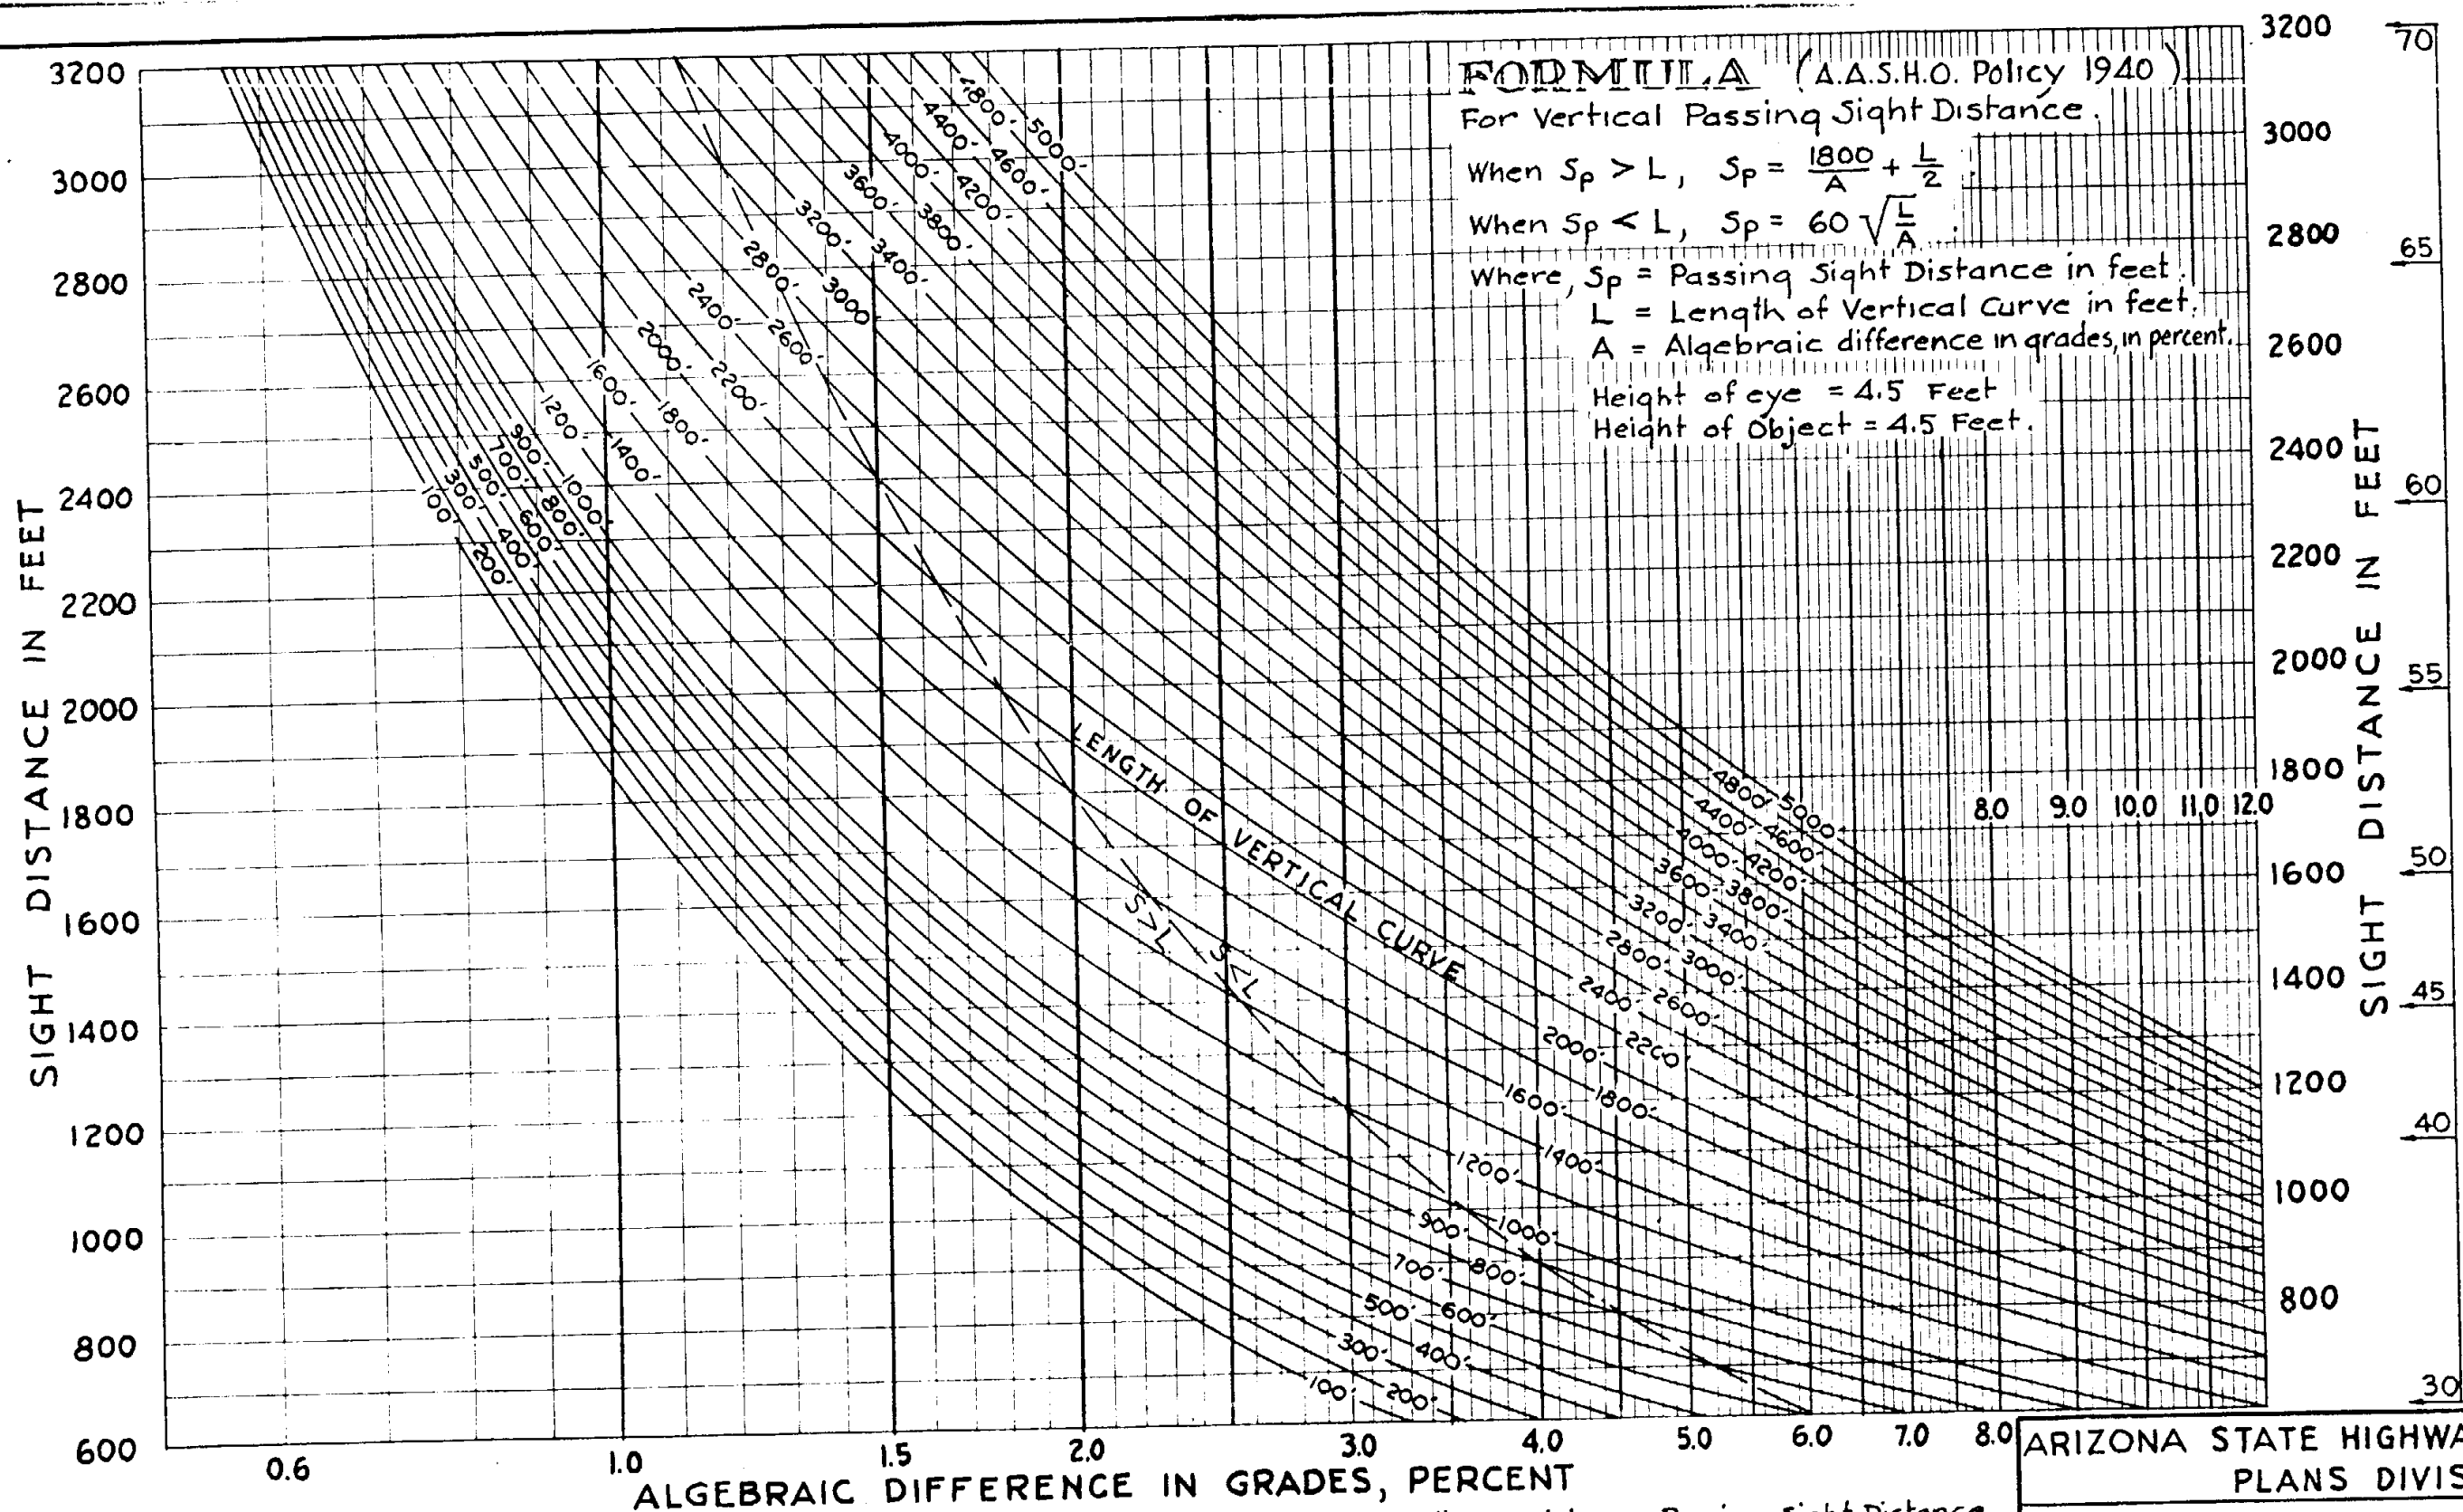 FORMULA (A.A.S.H.O. Policy 1940)
For Vertical Passing Sight Distance.
When Sp > L, Sp = 1800/A + L/2
When Sp < L, Sp = 60 √L/A.
Where, Sp = Passing Sight Distance in feet.
L = Length of Vertical Curve in feet.
A = Algebraic difference in grades, in percent.
Height of eye = 4.5 Feet
Height of Object = 4.5 Feet.
SIGHT DISTANCE IN FEET
3200
3000
2800
2600
2400
2200
2000
1800
1600
1400
1200
1000
800
600
4800' 5000'
4400' 4600'
4000' 4200'
3600' 3800'
3200' 3400'
2800' 3000'
2400' 2600'
2000' 2200'
1600' 1800'
1200' 1400'
900' 1000'
700' 800'
500' 600'
300' 400'
100' 200'
LENGTH OF VERTICAL CURVE
S>L S<L
4800' 5000'
4400' 4600'
4000' 4200'
3600' 3800'
3200' 3400'
2800' 3000'
2400' 2600'
2000' 2200'
1600' 1800'
1200' 1400'
900' 1000'
700' 800'
500' 600'
300' 400'
100' 200'
8.0 9.0 10.0 11.0 12.0
3200
3000
2800
2600
2400
2200
2000
1800
1600
1400
1200
1000
800
SIGHT DISTANCE IN FEET
70
65
60
55
50
45
40
30
0.6 1.0 1.5 2.0 3.0 4.0 5.0 6.0 7.0 8.0
ALGEBRAIC DIFFERENCE IN GRADES, PERCENT
ARIZONA STATE HIGHWA
PLANS DIVIS
Passing Sight Distance